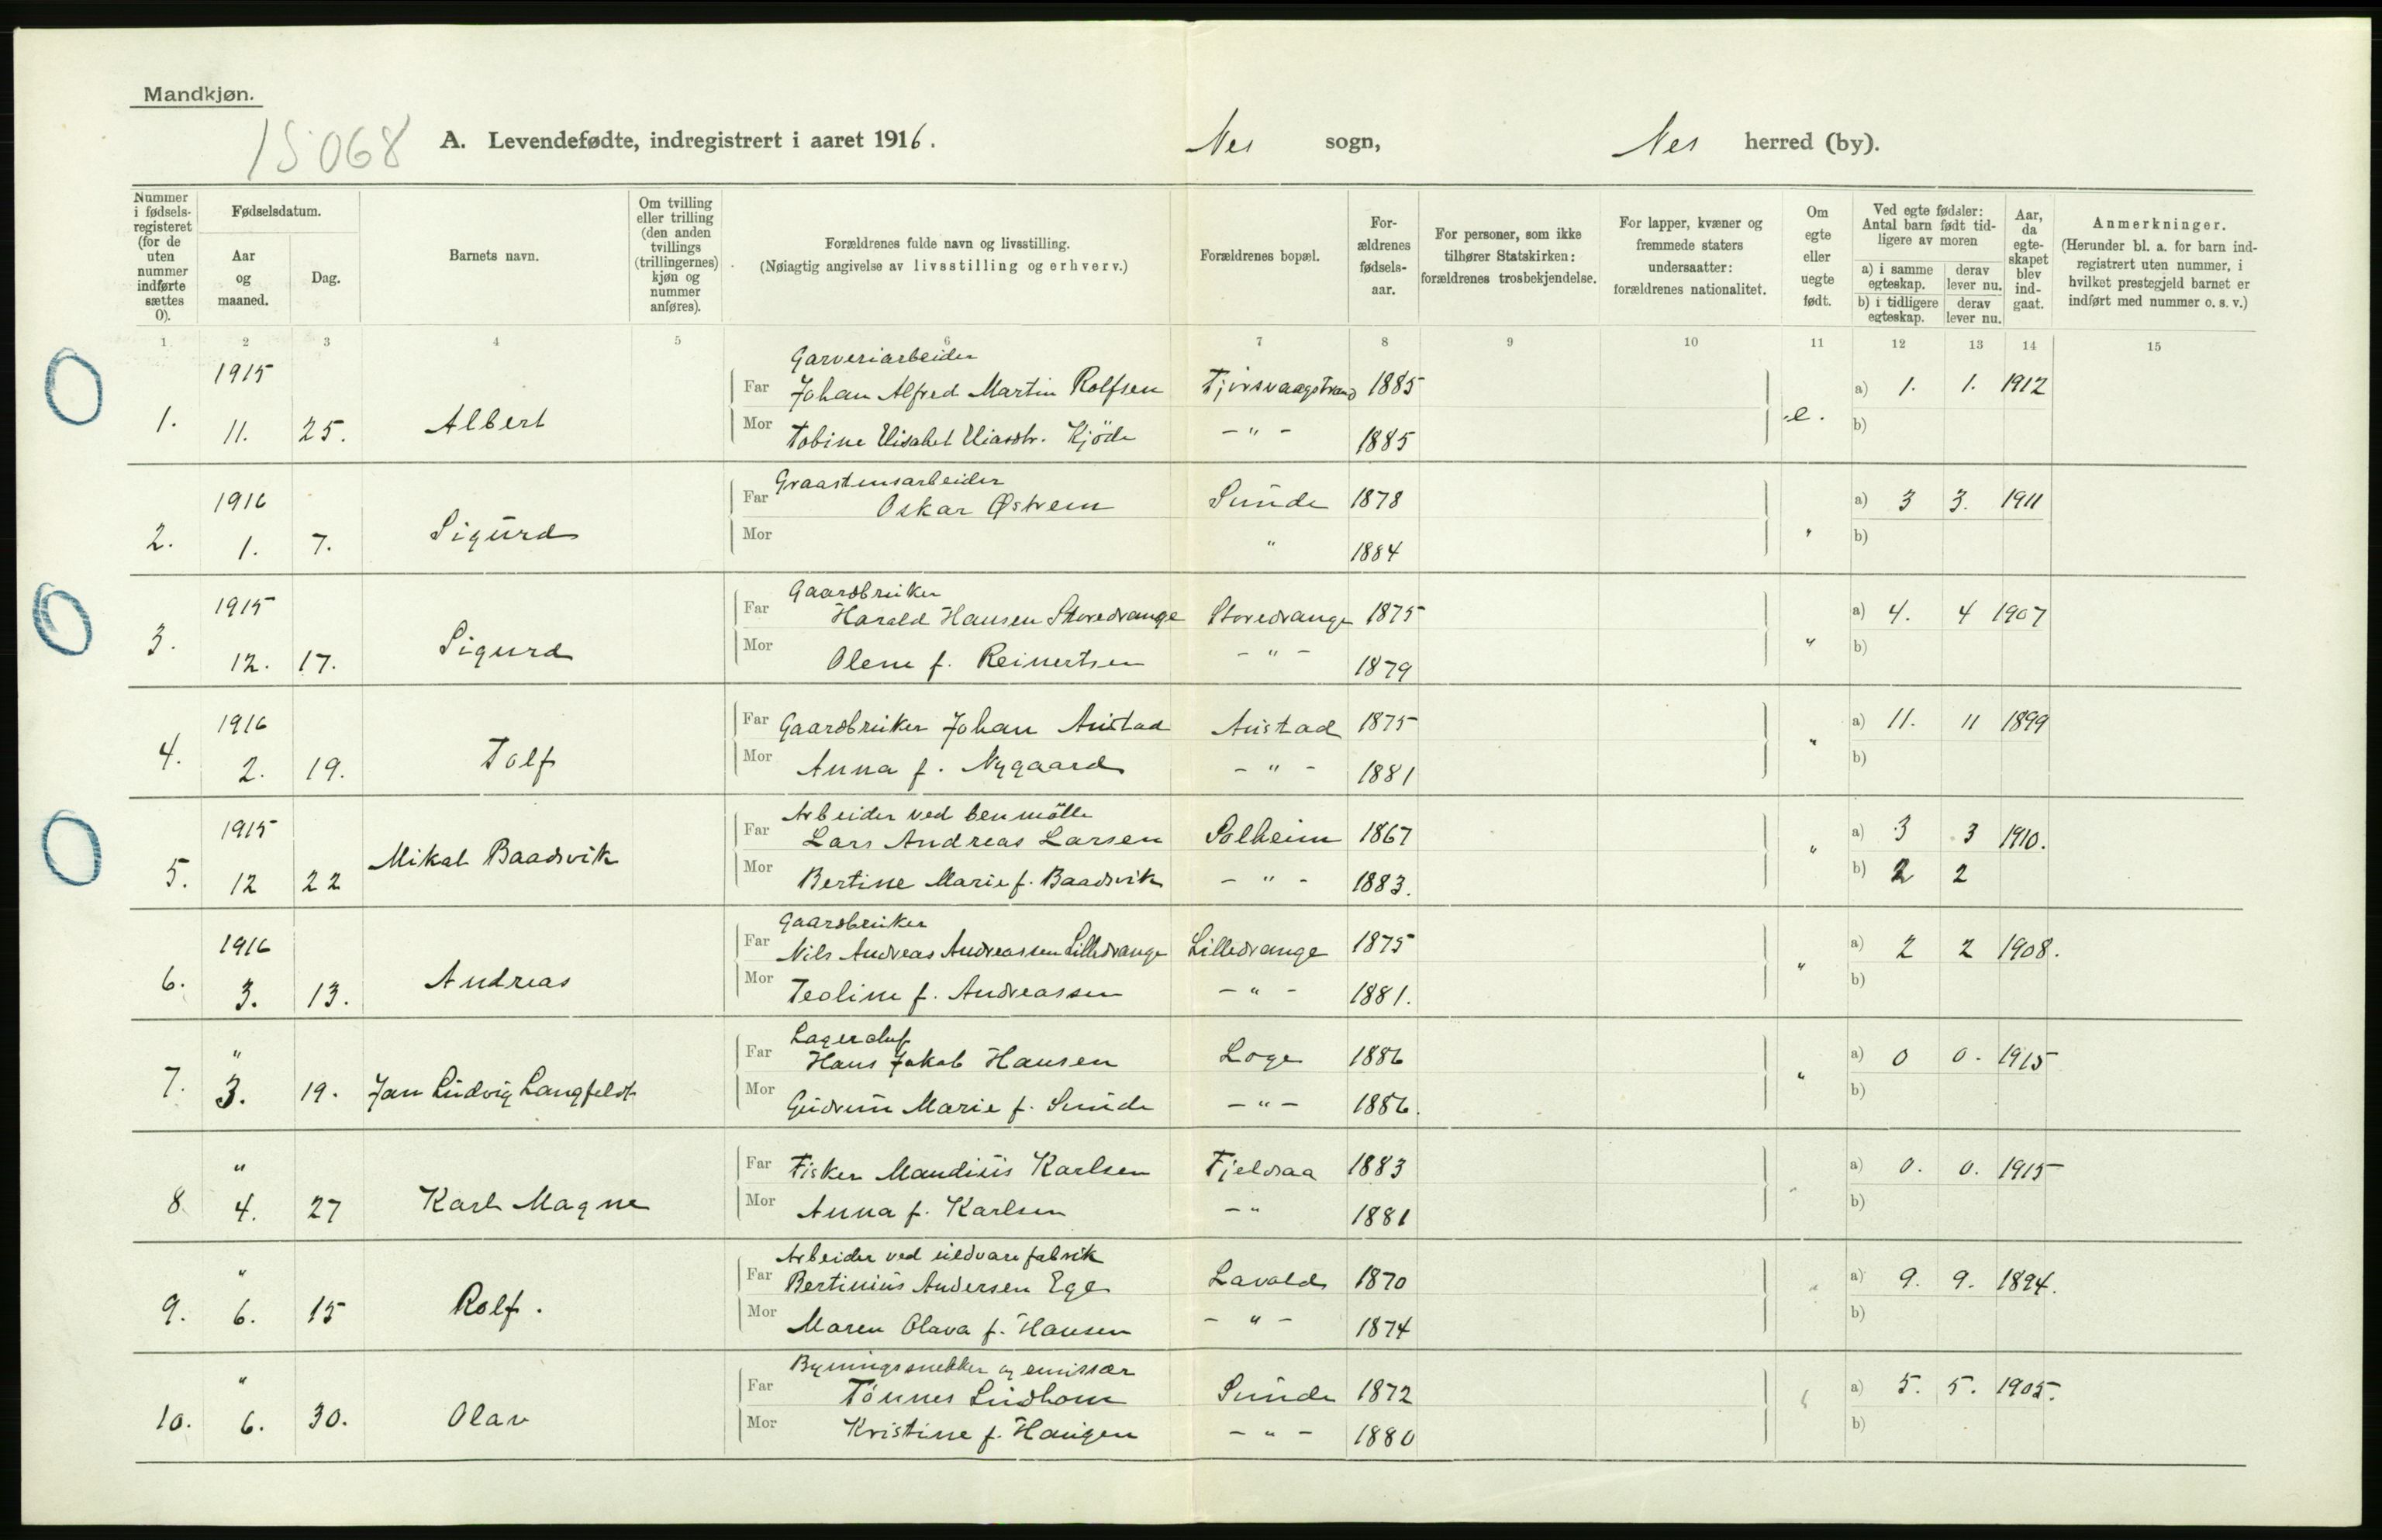 Mandkjøn.
15068
A. Levendefødte, indregistrert i aaret 1916.
Nes sogn,
Nes herred (by).
Nummer i fødselsregisteret (for de uten nummer indførte sættes 0).
Fødselsdatum.
Aar og maaned.
Dag.
Barnets navn.
Om tvilling eller trilling (den anden tvillings (trillingernes) kjøn og nummer anføres).
Forældrenes fulde navn og livsstilling.
(Nøiagtig angivelse av livsstilling og erhverv.)
Forældrenes bopæl.
Forældrenes fødselsaar.
For personer, som ikke tilhører Statskirken: forældrenes trosbekjendelse.
For lapper, kvæner og fremmede staters undersaatter: forældrenes nationalitet.
Om egte eller uegte født.
Ved egte fødsler: Antal barn født tidligere av moren
a) i samme egteskap.
derav lever nu.
b) i tidligere egteskap.
derav lever nu.
Aar, da egteskapet blev indgaat.
Anmerkninger.
(Herunder bl. a. for barn indregistrert uten nummer, i hvilket prestegjeld barnet er indført med nummer o. s. v.)
1 2 3 4 5 6 7 8 9 10 11 12 13 14 15
1915 Garveriarbeider
Far Johan Alfred Martin Rolfsen Tjørsvaagstrand 1885 a) 1. 1. 1912
1. 11. 25. Albert e.
Mor Tobine Elisabet Eliasdtr. Kjöde - " - 1885 b)
1916 Graastensarbeider
Far Oskar Østrem Sunde 1878 a) 3 3. 1911
2. 1. 7. Sigurd "
Mor " 1884 b)
1915 Gaardbruker
Far Harald Hansen Storedrange Storedrange 1875 a) 4. 4 1907
3. 12. 17. Sigurd "
Mor Olene f. Reinertsen - " - 1879 b)
1916
Far Gaardbruker Johan Austad Austad 1875 a) 11. 11 1899
4. 2. 19. Tolf "
Mor Anna f. Nygaard - " - 1881 b)
1915 Arbeider ved benmölle
Far Lars Andreas Larsen Solheim 1867 a) 3 3 1910.
5. 12 22 Mikal Baadsvik "
Mor Bertine Marie f. Baadsvik - " - 1883. b) 2 2
1916 Gaardbruker
Far Nils Andreas Andreassen Lilledrange Lilledrange 1875 a) 2 2 1908.
6. 3. 13. Andreas "
Mor Teoline f. Andreassen - " - 1881. b)
" Lagerchef
Far Hans Jakob Hansen Loge 1886 a) 0 0. 1915
7. 3. 19. Jan Ludvig Langfeldt "
Mor Gudrun Marie f. Sunde - " - 1886. b)
"
Far Fisker Maudius Karlsen Fjeldsaa 1883 a) 0. 0. 1915
8. 4. 27 Karl Magne "
Mor Anna f. Karlsen - " 1881 b)
" Arbeider ved uldvarefabrik
Far Bertinius Andersen Ege Lavold 1870 a) 9. 9. 1894.
9. 6. 15 Rolf. "
Mor Maren Olava f. Hansen - " - 1874 b)
" Bygningssnekker og emissær
Far Tönnes Lindhom Sunde 1872 a) 5. 5. 1905.
10. 6. 30. Olav "
Mor Kristine f. Haugen - " - 1880 b)